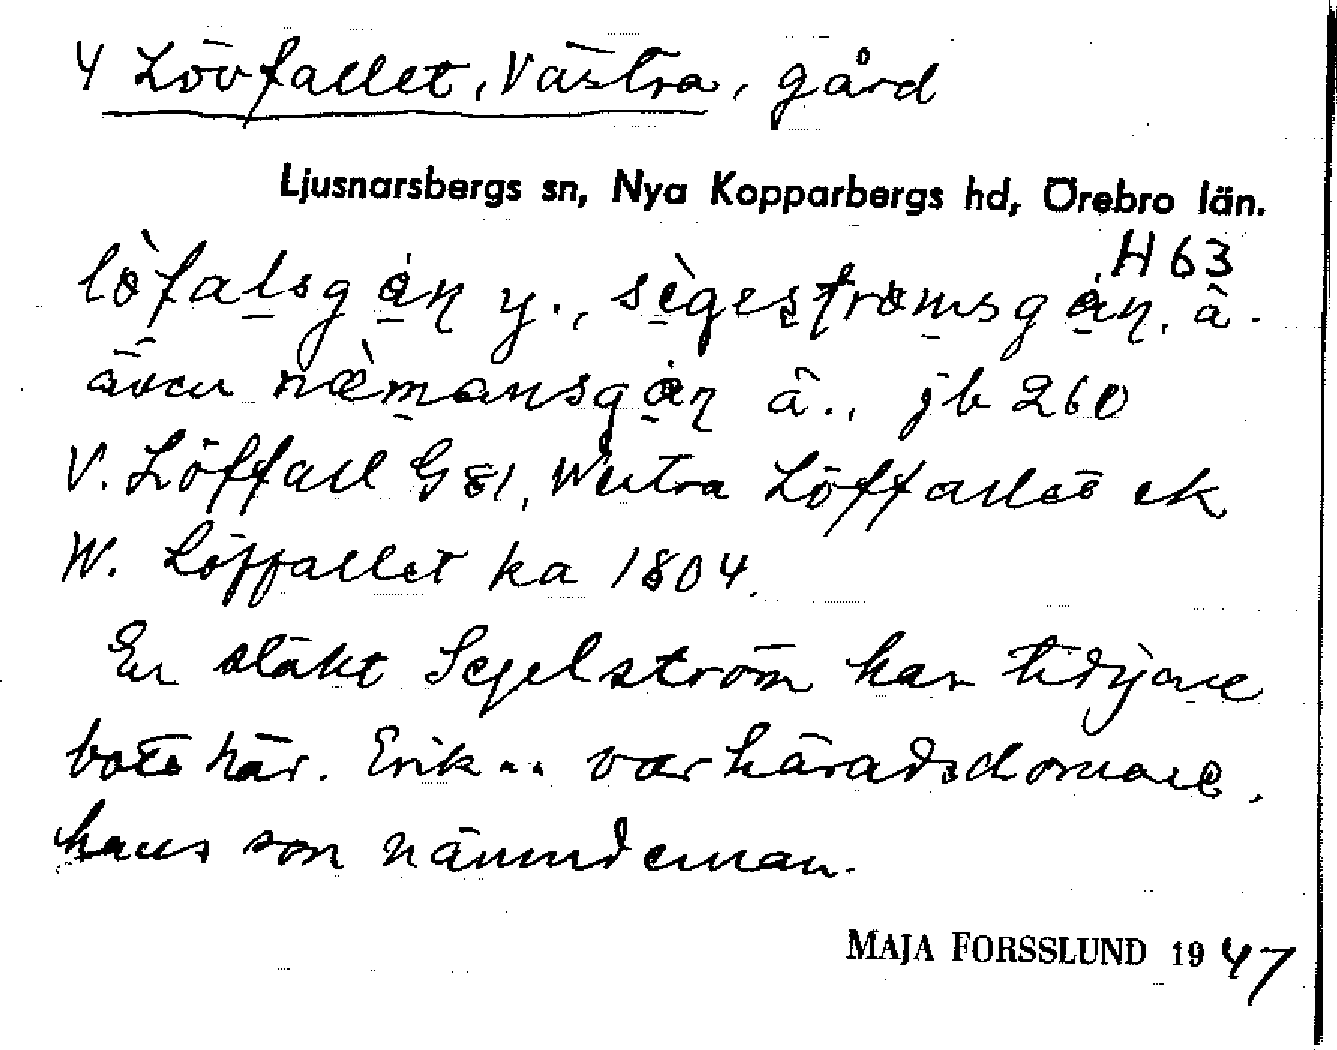 4 Lövfallet, Västra, gård
Ljusnarsbergs sn, Nya Kopparbergs hd, Örebro län.
H 63
lòfalsgån y., sègeströmsgån, ä.
även næ̀mansgån ä., jb 260
V. Löffall G 81, Westra Löffallet ek
W. Löffallet ka 1804.
En släkt Segelström har tidigare
bott här. Erik .. var häradsdomare,
hans son nämndeman.
MAJA FORSSLUND 1947